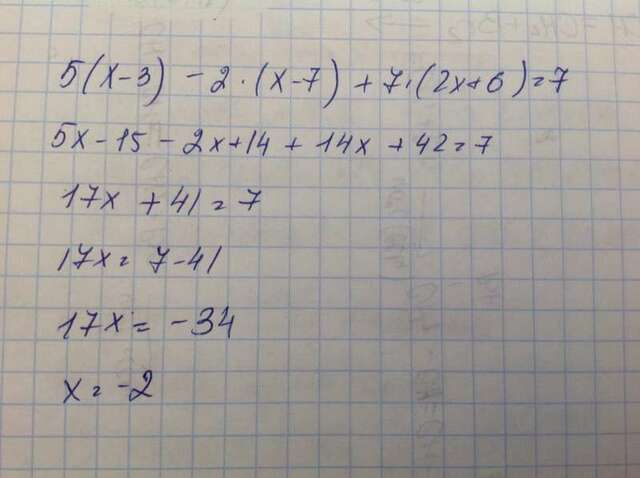 5(x-3) - 2·(x-7) + 7·(2x+6)=7
5x-15-2x+14+14x+42=7
17x+41=7
17x=7-41
17x=-34
x=-2